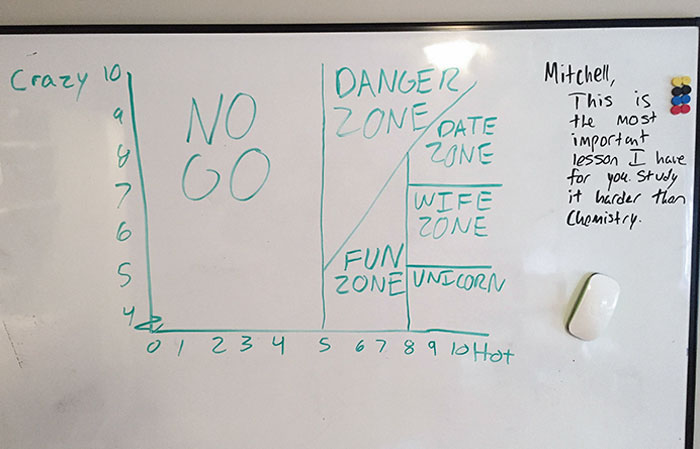 Crazy
10
9
8
7
6
5
4
NO
GO
DANGER
ZONE
DATE
ZONE
WIFE
ZONE
FUN
ZONE
UNICORN
0 1 2 3 4 5 6 7 8 9 10 Hot
Mitchell,
This is
the most
important
lesson I have
for you. Study
it harder than
Chemistry.